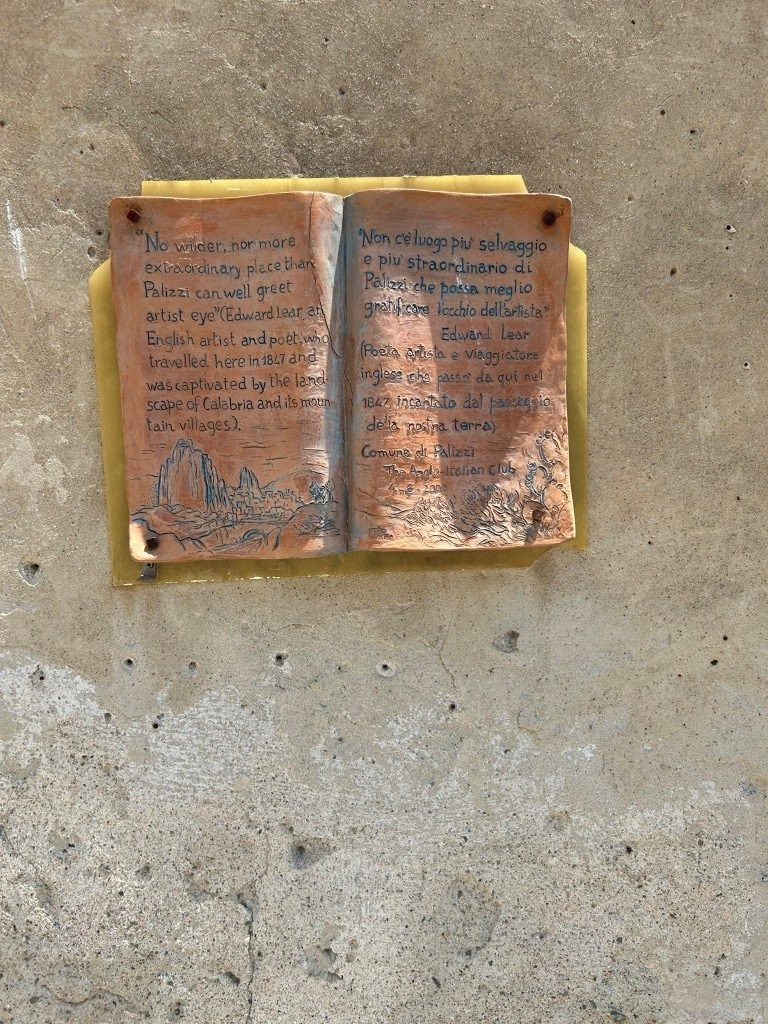 "No wilder, nor more
extraordinary place than
Palizzi can well greet
artist eye" (Edward Lear an
English artist and poet, who
travelled here in 1847 and
was captivated by the land-
scape of Calabria and its moun
tain villages).
"Non c'è luogo piu' selvaggio
e piu' straordinario di
Palizzi che possa meglio
gratificare l'occhio dell'artista"
Edward Lear
(Poeta artista e viaggiatore
inglese che passò da qui nel
1847 incantato dal paesaggio
della nostra terra).
Comune di Palizzi
The Anglo-Italian Club